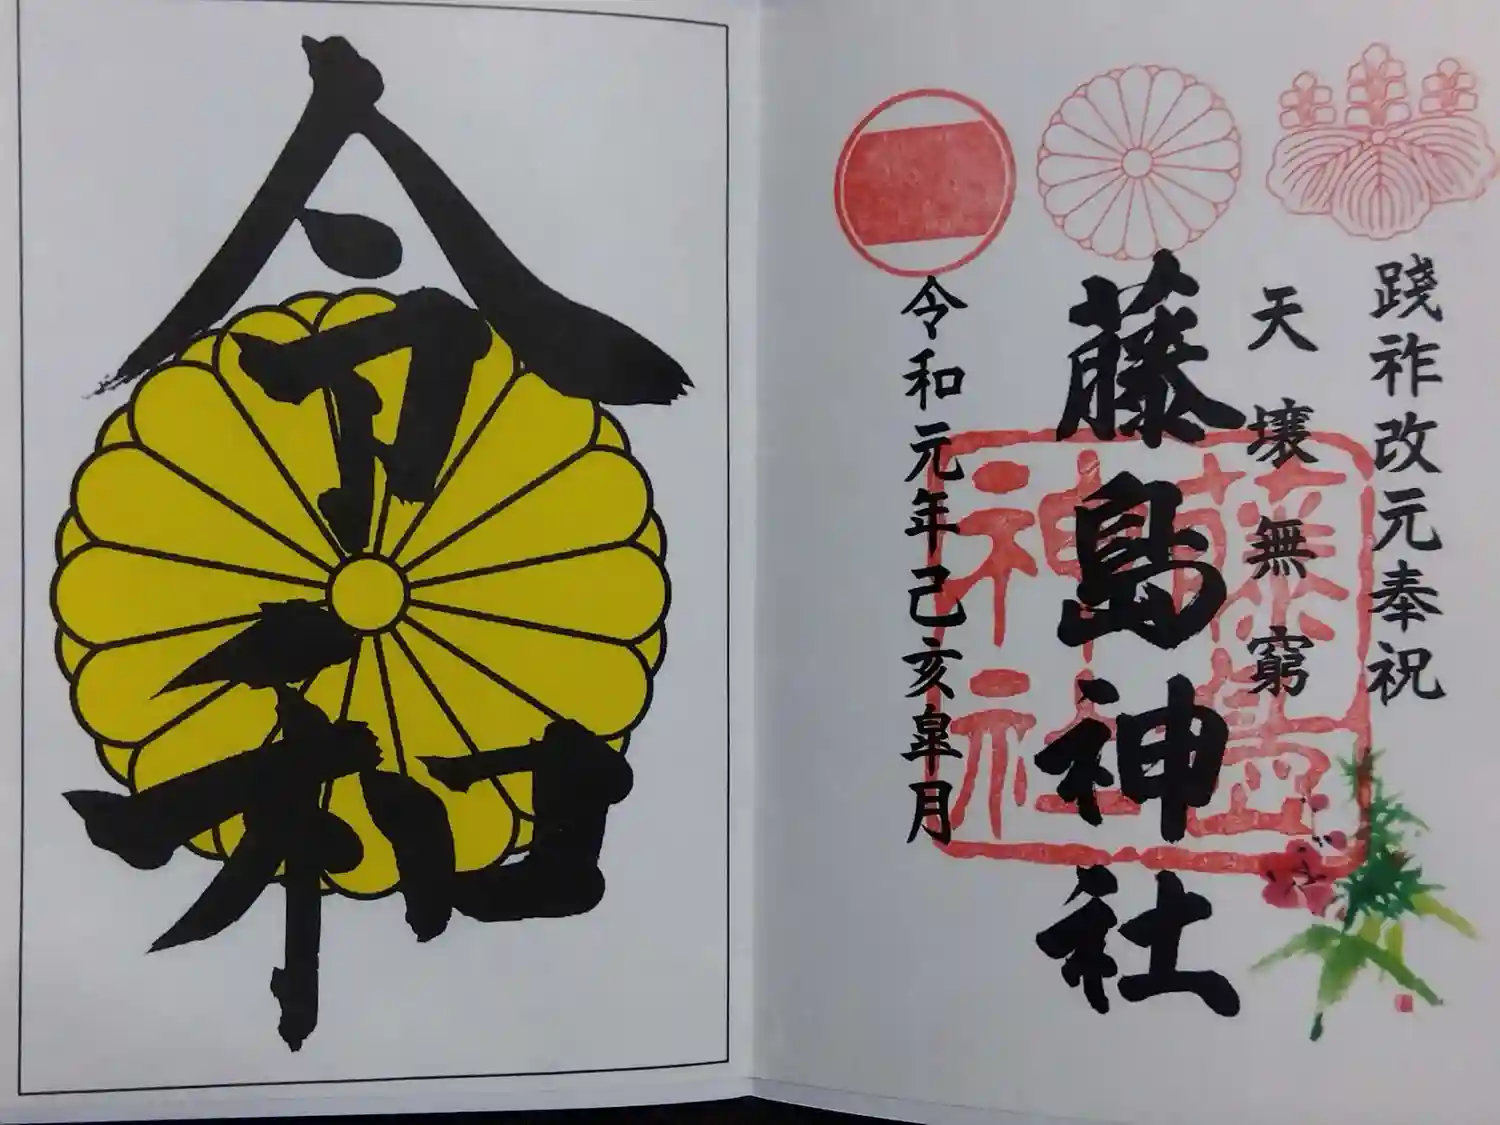 踐祚改元奉祝
天壌無窮
藤島神社
令和元年己亥皐月
藤島神社
令和